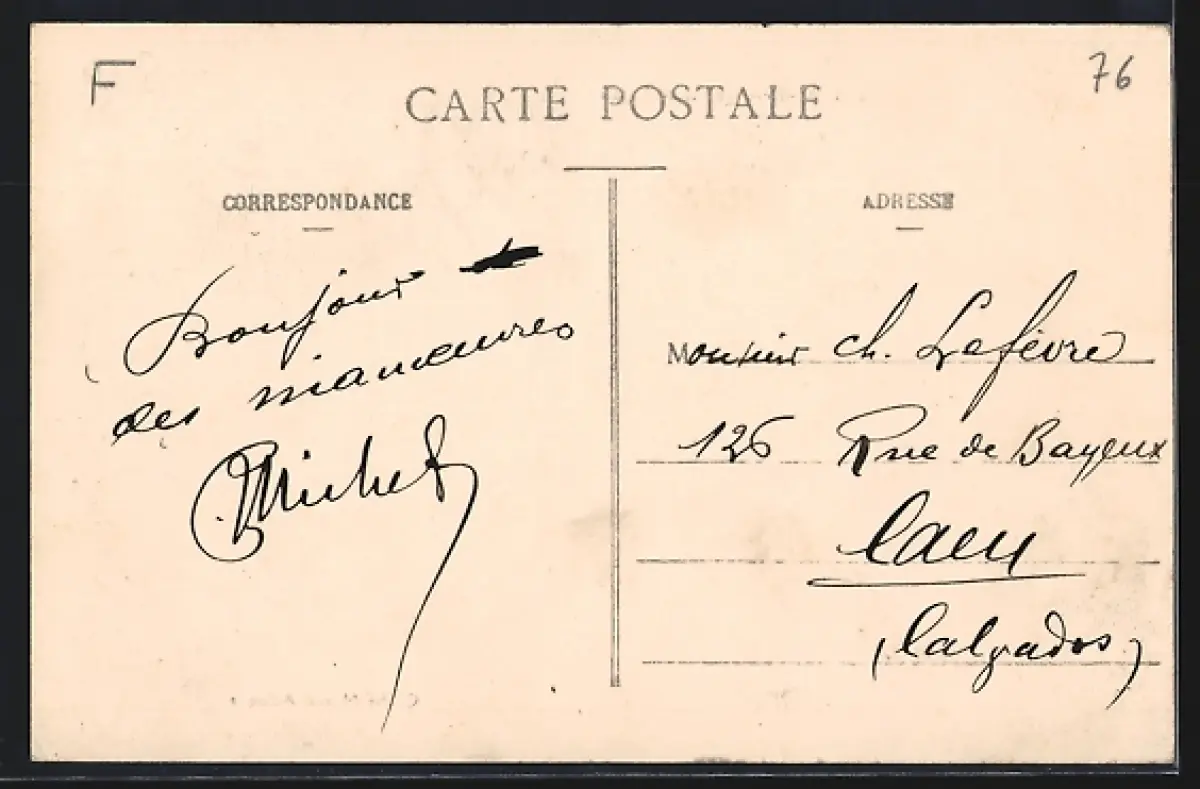 F
76
CARTE POSTALE
CORRESPONDANCE
Bonjour
des manœuvres
Michel
ADRESSE
Monsieur Ch. Lefèvre
126 Rue de Bayeux
Caen
(Calvados)